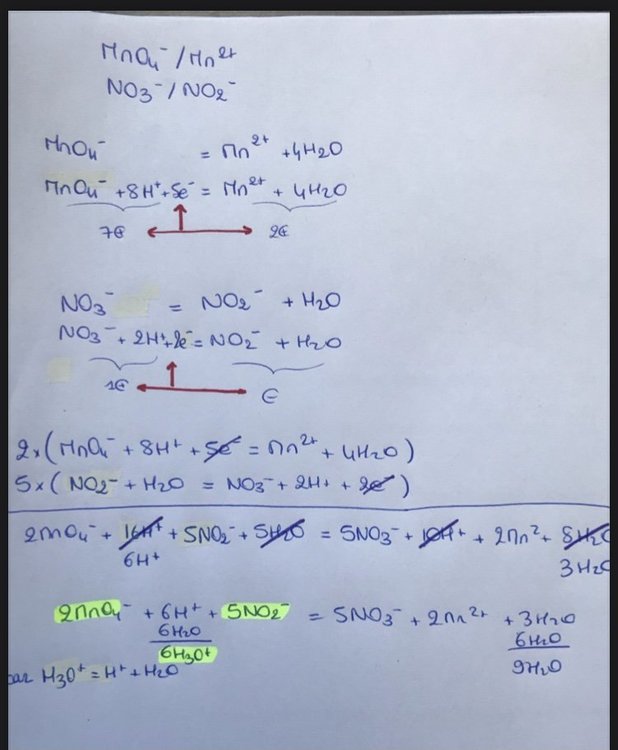 MnO4⁻ / Mn²⁺
NO3⁻ / NO2⁻
MnO4⁻ = Mn²⁺ + 4H2O
MnO4⁻ + 8H⁺ + 5e⁻ = Mn²⁺ + 4H2O
7⊕ 2⊕
NO3⁻ = NO2⁻ + H2O
NO3⁻ + 2H⁺ + 2e⁻ = NO2⁻ + H2O
1⊕ ⊖
2x ( MnO4⁻ + 8H⁺ + 5e⁻ = Mn²⁺ + 4H2O )
5x ( NO2⁻ + H2O = NO3⁻ + 2H⁺ + 2e⁻ )
2MnO4⁻ + 16H⁺ + 5NO2⁻ + 5H2O = 5NO3⁻ + 10H⁺ + 2Mn² + 8H2O
6H⁺ 3H2O
2MnO4⁻ + 6H⁺ + 5NO2⁻ = 5NO3⁻ + 2Mn²⁺ + 3H2O
6H2O 6H2O
6H3O⁺ 9H2O
H3O⁺ = H⁺ + H2O